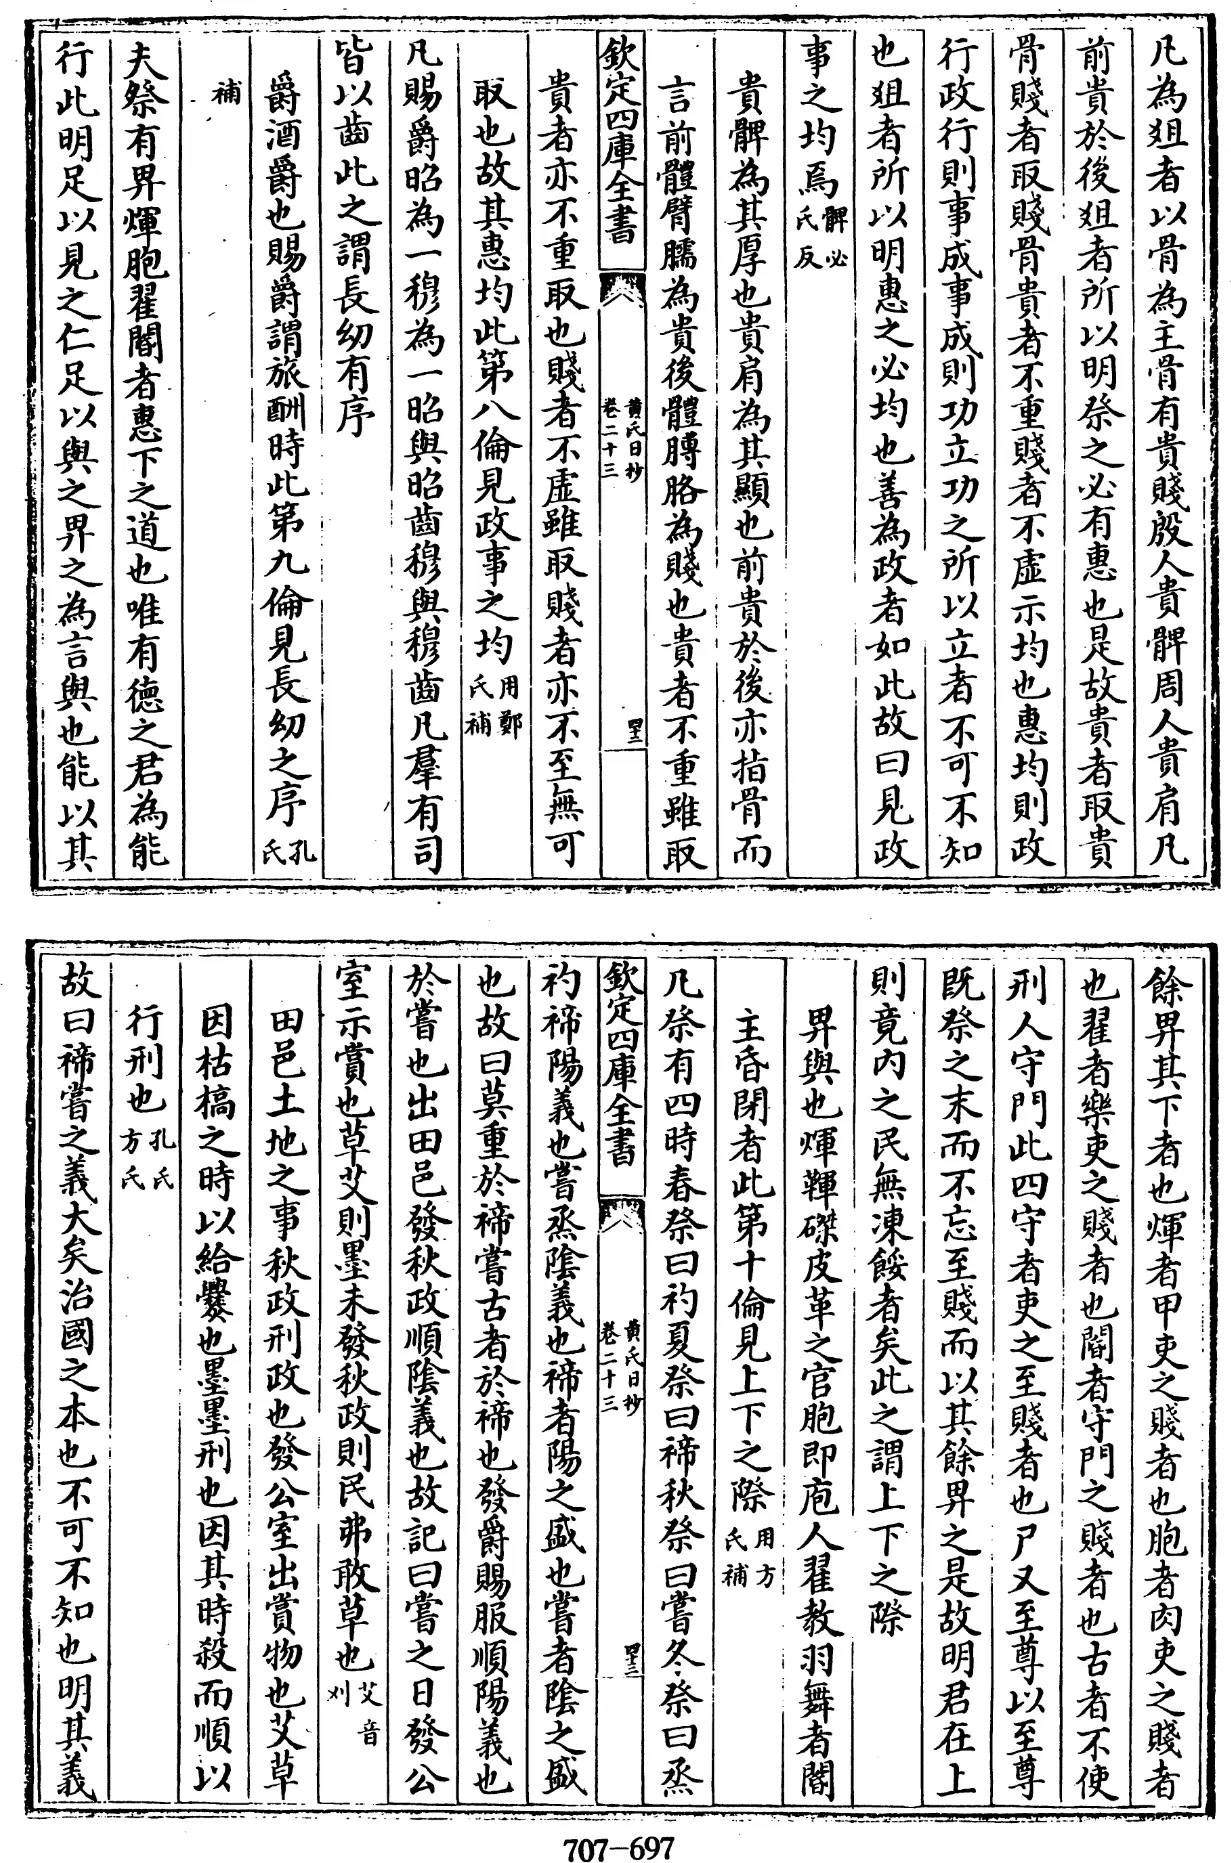 凡為爼者以骨為主骨有貴賤殷人貴髀周人貴肩凡
前貴於後爼者所以明祭之必有惠也是故貴者取貴
骨賤者取賤骨貴者不重賤者不虛示均也惠均則政
行政行則事成事成則功立功之所以立者不可不知
也爼者所以明惠之必均也善為政者如此故曰見政
事之均焉髀必氏反
貴髀為其厚也貴肩為其顯也前貴於後亦指骨而
言前體臂臑為貴後體膊胳為賤也貴者不重雖取
欽定四庫全書 黃氏日抄卷二十三 四十二
貴者亦不重取也賤者不虛雖取賤者亦不至無可
取也故其惠均此第八倫見政事之均用鄭氏補
凡賜爵昭為一穆為一昭與昭齒穆與穆齒凡羣有司
皆以齒此之謂長幼有序
爵酒爵也賜爵謂旅酬時此第九倫見長幼之序孔氏
補
夫祭有畀煇胞翟閽者惠下之道也唯有德之君為能
行此明足以見之仁足以與之畀之為言與也能以其
餘畀其下者也煇者甲吏之賤者也胞者肉吏之賤者
也翟者樂吏之賤者也閽者守門之賤者也古者不使
刑人守門此四守者吏之至賤者也尸又至尊以至尊
既祭之末而不忘至賤而以其餘畀之是故明君在上
則竟內之民無凍餒者矣此之謂上下之際
畀與也煇韗磔皮革之官胞即庖人翟教羽舞者閽
主昏閉者此第十倫見上下之際用方氏補
凡祭有四時春祭曰礿夏祭曰禘秋祭曰嘗冬祭曰烝
欽定四庫全書 黃氏日抄卷二十三 四十三
礿禘陽義也嘗烝陰義也禘者陽之盛也嘗者陰之盛
也故曰莫重於禘嘗古者於禘也發爵賜服順陽義也
於嘗也出田邑發秋政順陰義也故記曰嘗之日發公
室示賞也草艾則墨未發秋政則民弗敢草也艾音刈
田邑土地之事秋政刑政也發公室出賞物也艾草
因枯槁之時以給爨也墨墨刑也因其時殺而順以
行刑也孔氏方氏
故曰禘嘗之義大矣治國之本也不可不知也明其義
707-697